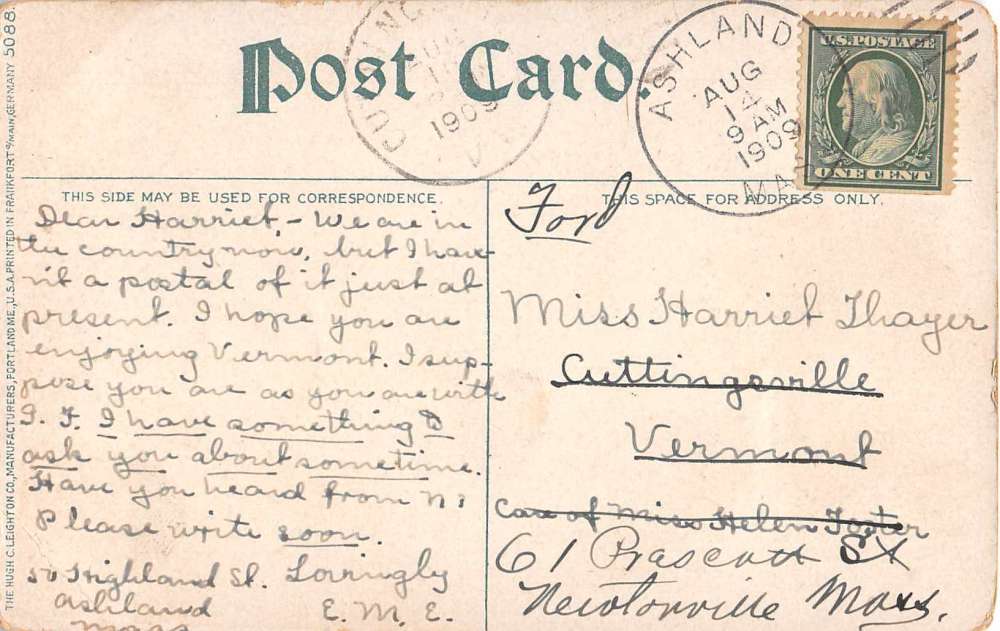 Post Card.
THE HUGH C. LEIGHTON CO., MANUFACTURERS, PORTLAND ME., U.S.A. PRINTED IN FRANKFORT o/MAIN, GERMANY 5088.
1909
ASHLAND
AUG
9 AM
1909
U.S. POSTAGE
ONE CENT
THIS SIDE MAY BE USED FOR CORRESPONDENCE.
Dear Harriet, - We are in
the country now, but I have
n't a postal of it just at
present. I hope you are
enjoying Vermont. I sup-
pose you are as you are with
I have something to
ask you about sometime.
Have you heard from
Please write soon.
50 Highland St. Lovingly
Ashland E. M. E.
Mass
THIS SPACE FOR ADDRESS ONLY.
Ford
Miss Harriet Thayer
Cuttingsville
Vermont
Care of Miss Helen Foster
61 Prascott St
Newtonville Mass.